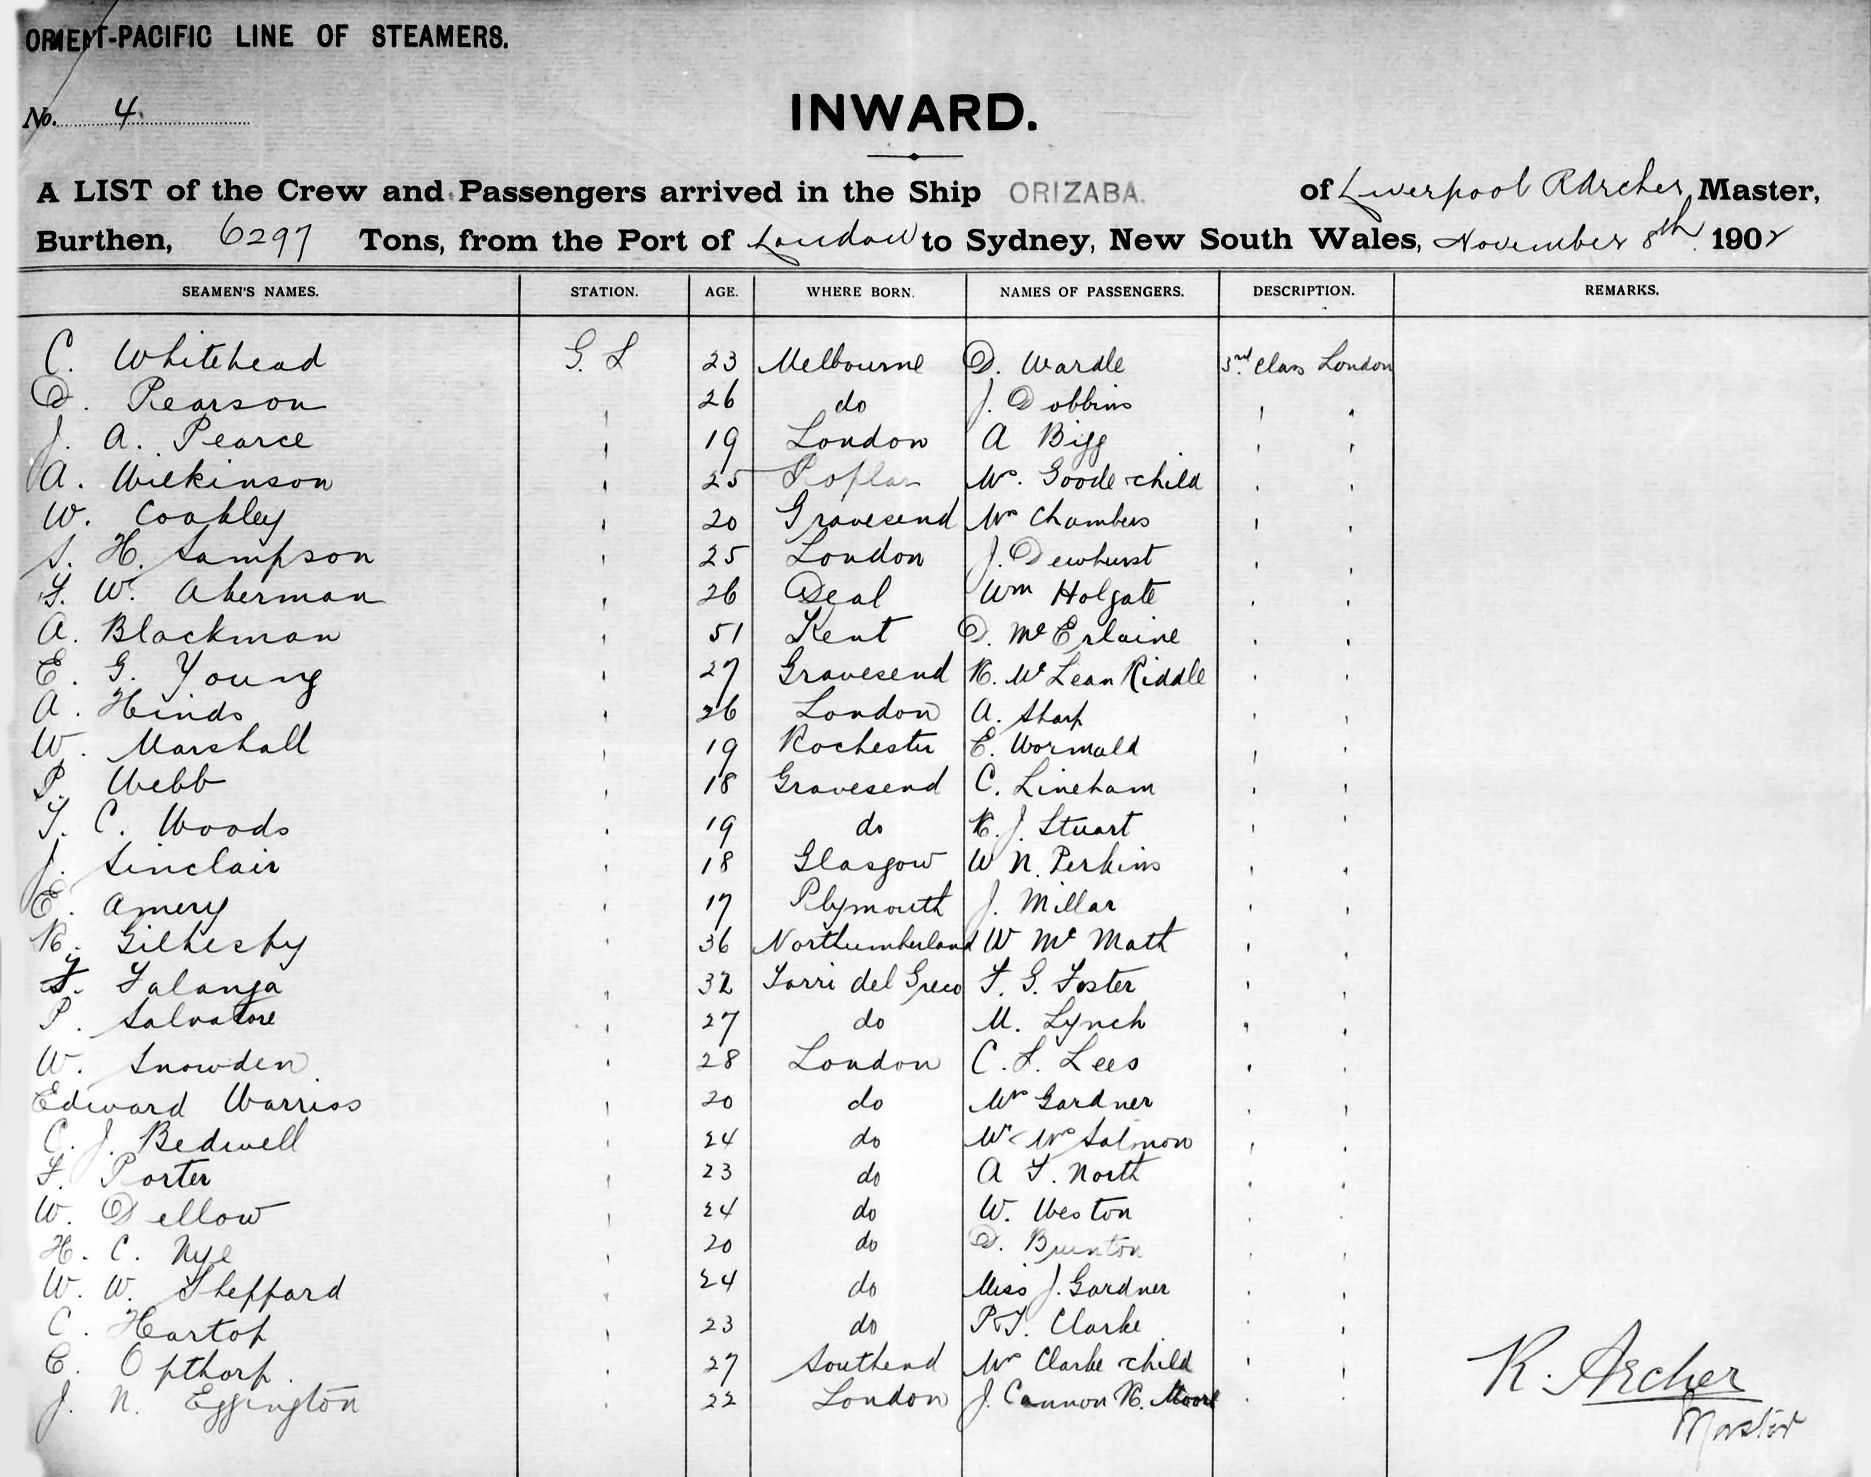 ORIENT-PACIFIC LINE OF STEAMERS.
No. 4.
INWARD.
A LIST of the Crew and Passengers arrived in the Ship ORIZABA. of Liverpool R Archer, Master,
Burthen, 6297 Tons, from the Port of London to Sydney, New South Wales, November 8th 1902
SEAMEN'S NAMES. STATION. AGE. WHERE BORN. NAMES OF PASSENGERS. DESCRIPTION. REMARKS.
C. Whitehead G. S 23 Melbourne D. Wardle 3rd class London
D. Pearson " 26 do J. Dobbins " "
J. A. Pearce " 19 London A Bigg " "
A. Wilkinson " 25 Poplar Mrs. Goode child " "
W. Coakley " 20 Gravesend Mrs Chambers " "
S. H. Sampson " 25 London J. Dewhurst " "
F. W. Akerman " 26 Deal Wm Holgate " "
A. Blackman " 51 Kent D. McErlaine " "
E. G. Young " 27 Gravesend R. McLean Riddle " "
A. Hinds " 26 London A. Sharp " "
W. Marshall " 19 Rochester E. Wormald " "
P. Webb " 18 Gravesend C. Lineham " "
T. C. Woods " 19 do R. J. Stuart " "
J. Sinclair " 18 Glasgow W N. Perkins " "
E. Amery " 17 Plymouth J. Millar " "
R. Gilhespy " 36 Northumberland W Mc Math " "
Falanga " 32 Torri del Greco F. G. Foster " "
P. Salvatore " 27 do M. Lynch " "
W. Snowden " 28 London C. F. Lees " "
Edward Warriss " 20 do Mrs Gardner " "
C. J. Bedwell " 24 do Mr & Mrs Salmon " "
F. Porter " 23 do A F. North " "
W. Dellow " 24 do W. Weston " "
H. C. Nye " 20 do D. Brunton " "
W. W. Sheppard " 24 do Miss J. Gardner " "
C. Hartop " 23 do P. T. Clarke " "
C. Opthorp. " 27 Southend Mrs Clarke child " "
J. N. Eggington " 22 London J. Cannon R. Moore " "
R. Archer
Master